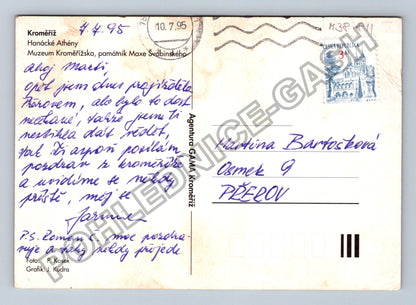 Kroměříž
Hanácké Athény
Muzeum Kroměřížska, památník Maxe Švabinského
7.7.95
Ahoj Marti,
opět jsem dnes projížděla
Přerovem, ale bylo to dost
nečekané, takže jsem ti
nestihla dát vědět,
tak ti aspoň posílám
pozdrav z Kroměříže
a uvidíme se někdy
příště, měj se
P.S. Roman tě moc pozdra-
vuje a taky někdy přijede
Foto: P. Kosek
Grafik: J. Kudra
Agentura GAMA Kroměříž
10.7.95
ČESKÁ REPUBLIKA
3
Martina Bartošková
Osmek 9
PŘEROV
POHLEDNICE-GASH